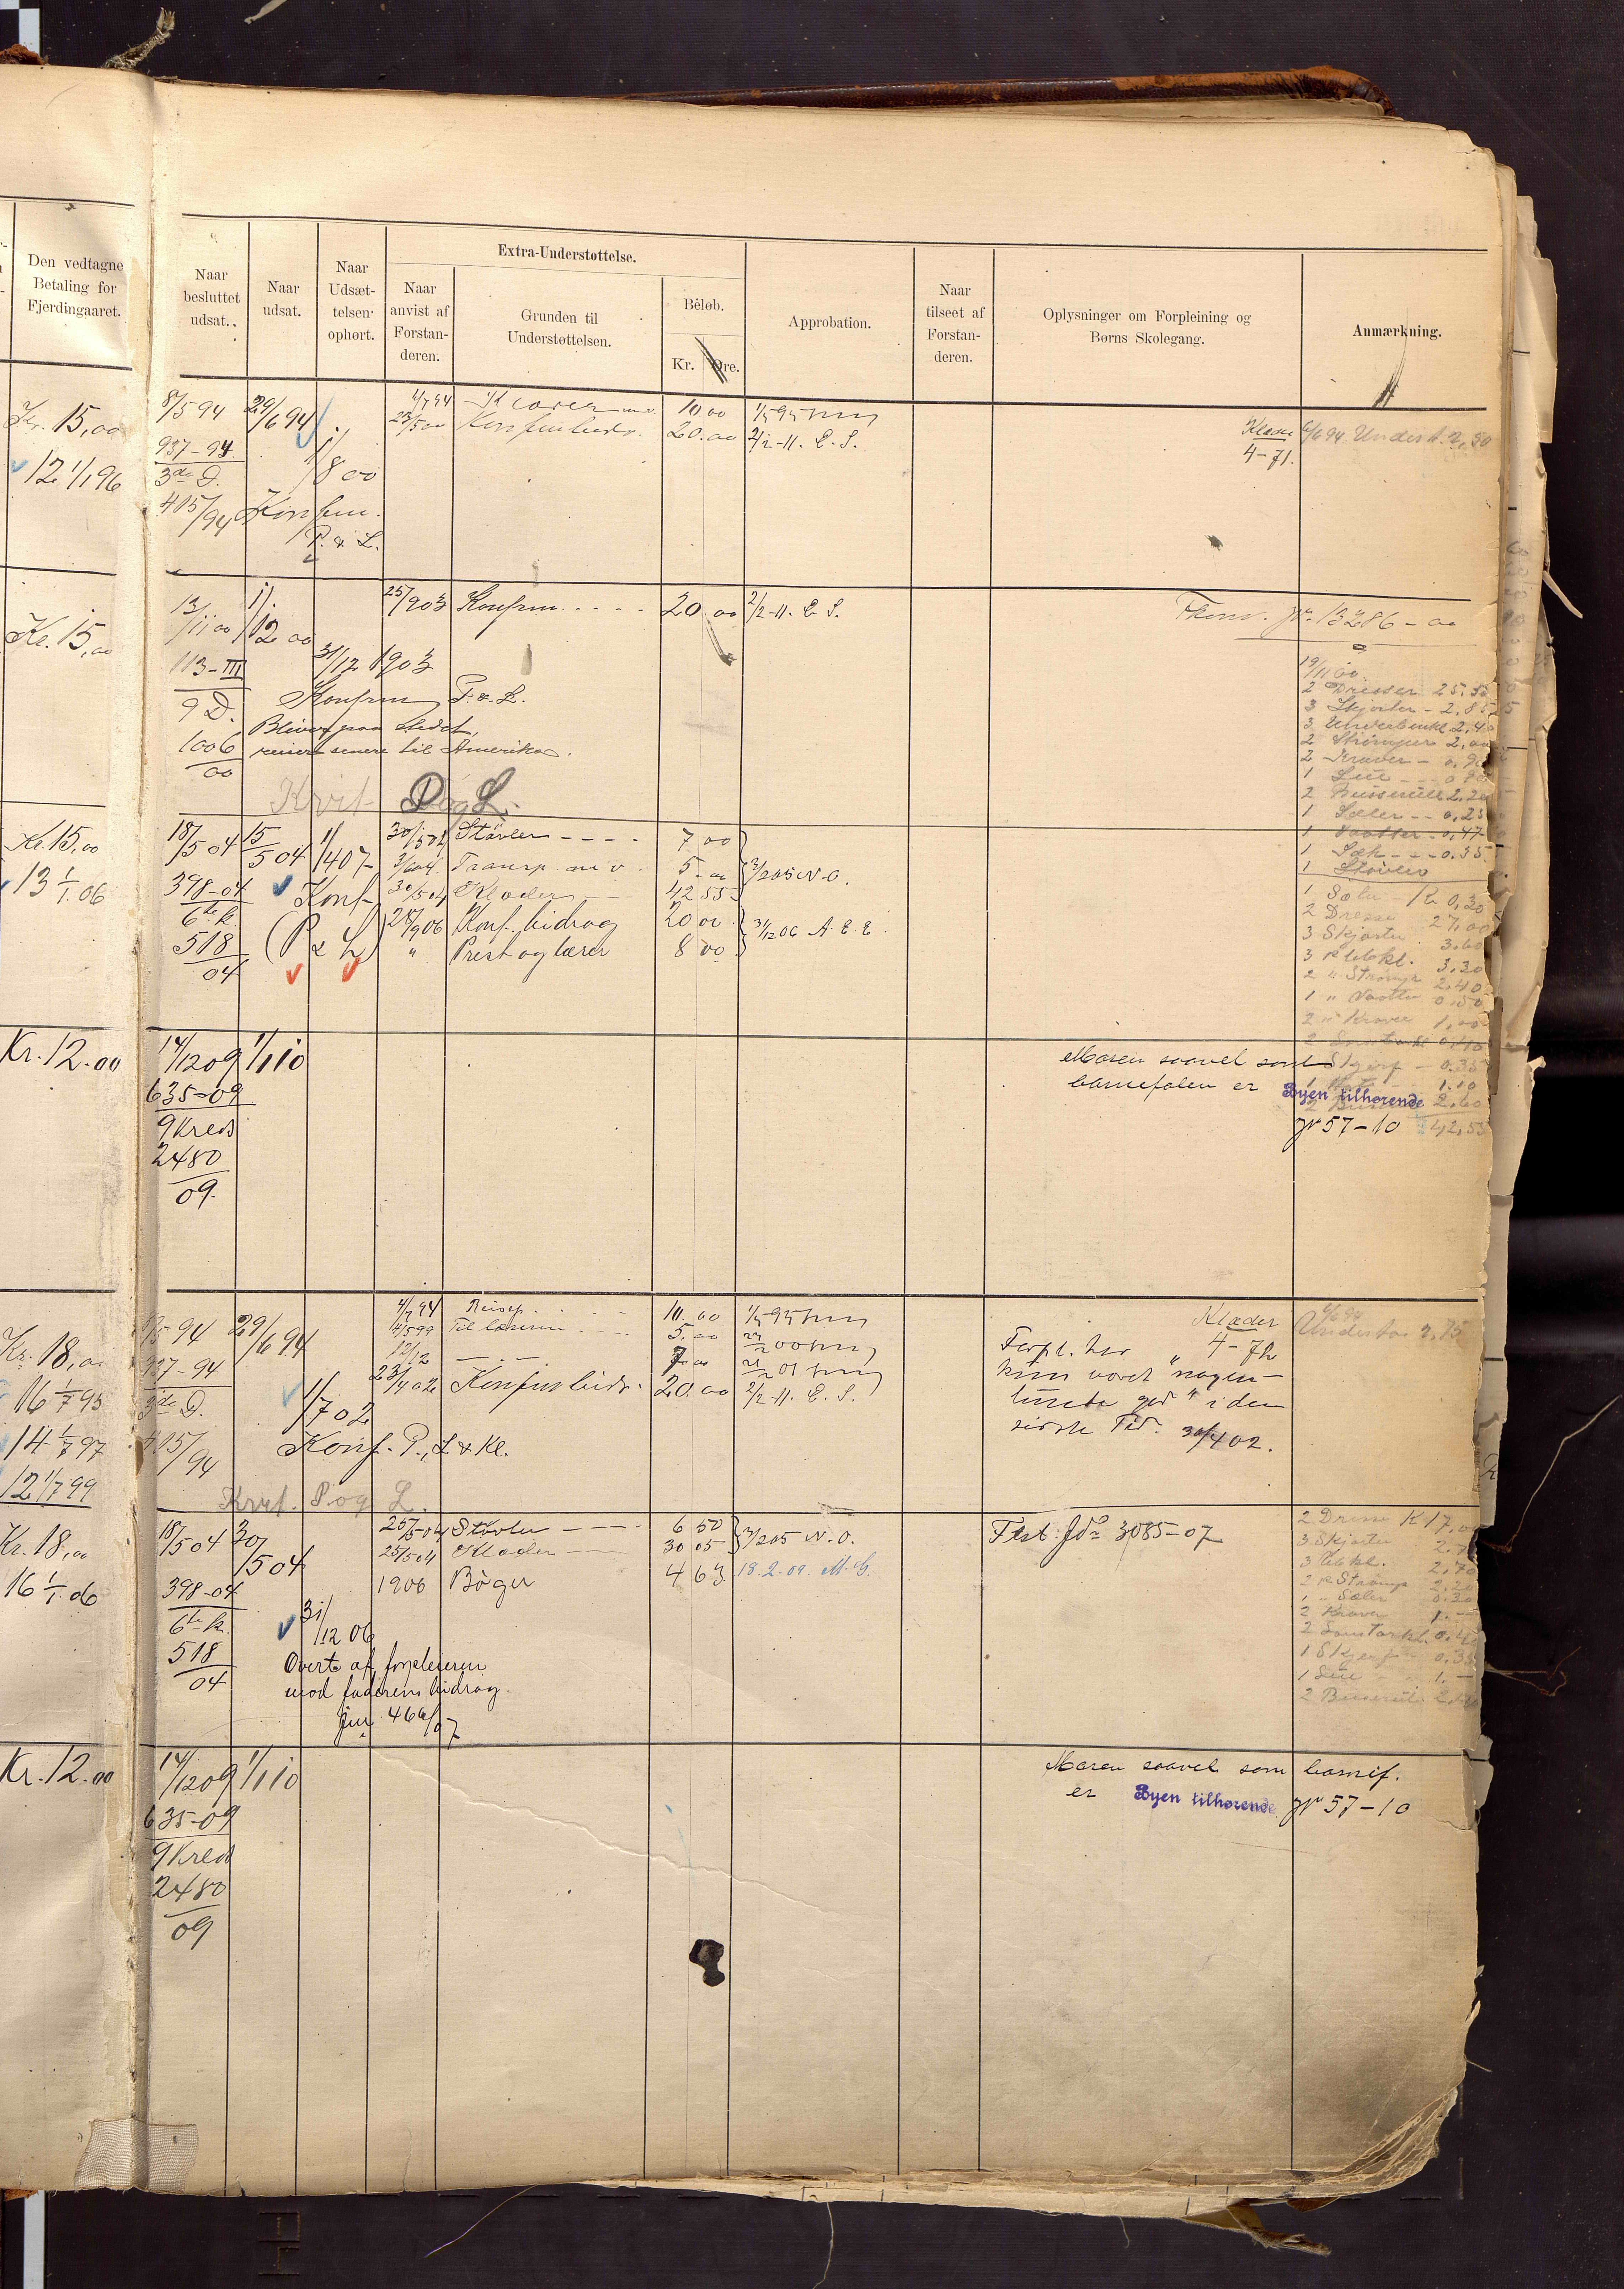 Den vedtagne
Betaling for
Fjerdingaaret.
Naar
besluttet
udsat.
Naar
udsat.
Naar
Udsæt-
telsen
ophørt.
Extra-Understøttelse.
Naar
anvist af
Forstan-
deren.
Grunden til
Understøttelsen.
Beløb.
Kr. Øre.
Approbation.
Naar
tilseet af
Forstan-
deren.
Oplysninger om Forpleining og
Børns Skolegang.
Anmærkning.
Kr. 15,00
12 1/1 96
8/5 94 29/6 94
937-94
3de D.
415/94
1/8 00
Konfirm.
P. & L.
4/7 94 10.00 1/5 95
23/5 00 20.00 2/2-11. E. S.
4-71.
6/6 94 Underst. 2,50
Kr. 15,00
13/11 00 1/12 00
113-III
9 D.
1006
00
31/12 1903
Konfirm P. & L.
Bliver paa Stedet,
reiser senere til Amerika.
Kvit P og L.
25/9 03 Konfirm. 20.00 2/2-11. E. S.
Jr. 13286-00
19/11 00
2 Dresser 25.
3 Skjorter - 2.85
3 Underbenkl 2,40
2 Strømper 2,00
2 Kraver -
1 Lue
2 Busseruller 2,20
1 Sæler -- 0,25
1 Vaatter - 0,47
1 Sæk --- 0.35
1 Støvler
Kr. 15,00
13 1/1 06
18/5 04 15/5 04 1/4 07
398-04
6te k.
518
04
Konf
(P & L)
30/5 04 Støvler ---- 7 00
3/6 04 Transp. m v. 5 - 00 3/2 05 N. O.
30/5 04 Klæder 42 55
28/9 06 Konf. bidrag 20 00 31/12 06 A. E. E.
" Prest og lærer 8 00
1 Sæler - K 0,30
2 Dresse 27,00
3 Skjorter 3.60
3 Ubkl. 3,30
2 " Strømpe 2,40
1 " Vaatter 0,50
2 " Kraver 1,00
1 Skjerf - 0.35
1.10
2.60
42,55
Kr. 12.00
14/12 09 1/1 10
635-09
9 Kreds
2480
09.
Moren saavel som
barnefaren er Byen tilhørende
Jr 57-10
Kr. 18,00
16 1/7 95
14 1/7 97
12 1/7 99
8/5 94 29/6 94
937-94
3de D.
415/94
1/7 02
Konf. P., L & Kl.
Kvit. P og L.
4/7 94 Reisep. 10.00 1/5 95
4/5 99 Til læseren 5.00
12/12 7.00
23/4 02 Konfirmbidr. 20.00 2/2-11. E. S.
Klæder
4-72
Forpl. har
kun været "nogen-
lunde god" i den
sidste Tid. 30/4 02.
6/6 94
Underst. 2,75
Kr. 18,00
16 1/1 06
18/5 04 30/5 04
398-04
6te k.
518
04
31/12 06
Overt. af forpleieren
mod faderens bidrag.
Jur 466/07
25/5 04 Støvler ---- 6 50
25/5 04 Klæder 30 05 3/2 05 N. O.
1906 Bøger 4 63 18.2.09. M. G.
Jdo 3085-07
2 Dresse K 17,
3 Skjorter
3 Ubkl. 2,70
2 " Strømpe 2,20
1 " Sæler 0,30
2 Kraver 1.-
1 Skjerf 0,35
1 Lue 1.-
2 Busserulle
Kr. 12.00
14/12 09 1/1 10
635-09
9 Kreds
2480
09
Moren saavel som barnef.
er Byen tilhørende Jr 57-10